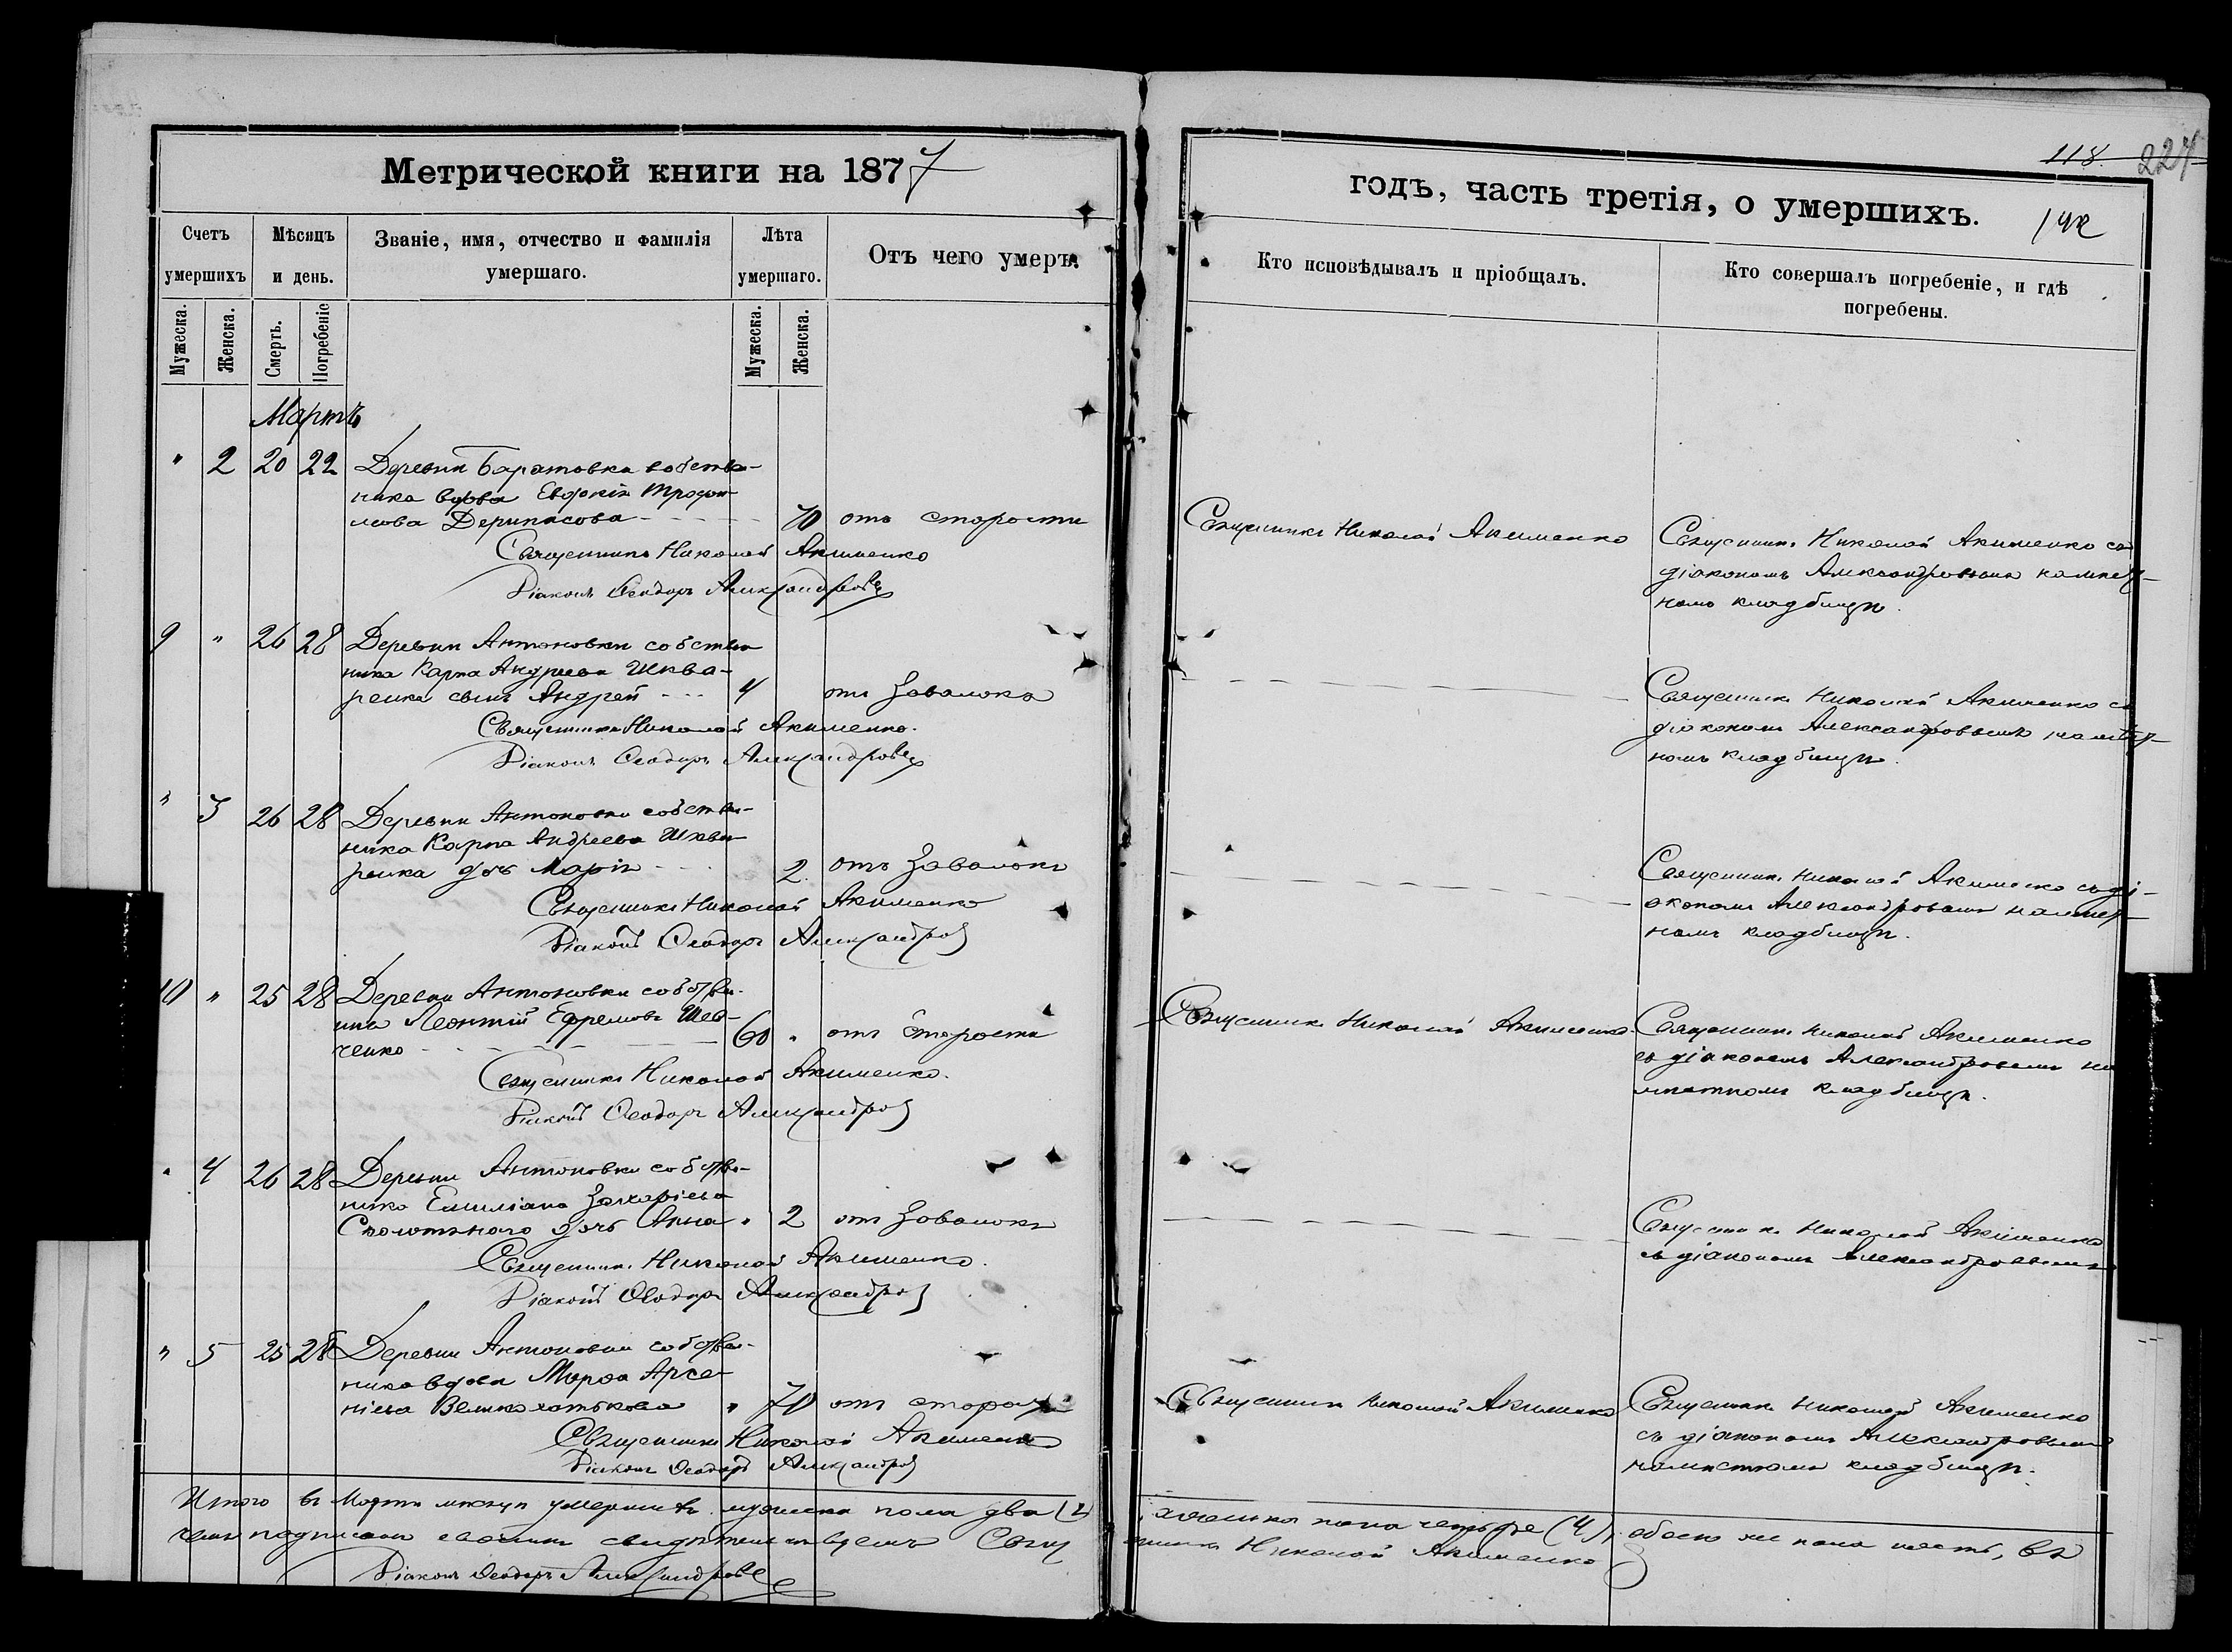 Метрической книги на 1877
Счетъ умершихъ
Мѣсяцъ и день.
Званіе, имя, отчество и фамилія умершаго.
Лѣта умершаго.
Отъ чего умеръ.
Мужеска.
Женска.
Смерть.
Погребеніе
Мужеска.
Женска.
Мартъ
" 2 20 22 Деревни Баратовки собствен-
ника вдова Евдокія Трофи-
мова Дерипасова 70 отъ старости
Священникъ Николай Акименко
Діаконъ Ѳеодоръ Александровъ
9 " 26 28 Деревни Антоновки собствен
ника Карпа Андреева Шква-
ренка сынъ Андрей 4 отъ завалокъ
Священникъ Николай Акименко.
Діаконъ Ѳеодоръ Александровъ
" 3 26 28 Деревни Антоновки собствен-
ника Карпа Андреева Шква
ренка дочь Марія 2. отъ завалокъ
Священникъ Николай Акименко
Діаконъ Ѳеодоръ Александров
10 " 25 28 Деревни Антоновки собствен-
никъ Леонтій Ефремовъ Шев-
ченко 60 " отъ старости
Священникъ Николай Акименко.
Діаконъ Ѳеодоръ Александров
" 4 26 28 Деревни Антоновки собствен-
ника Емиліана Захаріева
дочь Анна " 2 отъ завалокъ
Священникъ Николай Акименко.
Діаконъ Ѳеодоръ Александров
" 5 25 28 Деревни Антоновки собствен-
ника вдова Марѳа Арсе-
ніева Великохатькова " 70 отъ старости
Священникъ Николай Акименко
Діаконъ Ѳеодоръ Александров
Итого въ Мартѣ мѣсяцѣ умершихъ мужеска пола два (2)
чемъ подписомъ своимъ свидѣтельствуемъ Свящ
Діаконъ Ѳеодоръ Александровъ
118. 227
годъ, часть третія, о умершихъ.
142
Кто исповѣдывалъ и пріобщалъ.
Кто совершалъ погребеніе, и гдѣ погребены.
Священникъ Николай Акименко
Священникъ Николай Акименко съ
діакономъ Александровымъ на мѣст-
номъ кладбищѣ.
Священникъ Николай Акименко съ
діакономъ Александровымъ на мѣст-
номъ кладбищѣ.
Священникъ Николай Акименко съ ді-
акономъ Александровымъ на мѣст-
номъ кладбищѣ.
Священникъ Николай Акименко.
Священникъ Николай Акименко
съ діакономъ Александровымъ на
мѣстномъ кладбищѣ.
Священникъ Николай Акименко
съ діакономъ Александровымъ
Священникъ Николай Акименко
Священникъ Николай Акименко
съ діакономъ Александровымъ
на мѣстномъ кладбищѣ.
женска пола четыре (4), обоего же пола шесть, въ
енникъ Николай Акименко